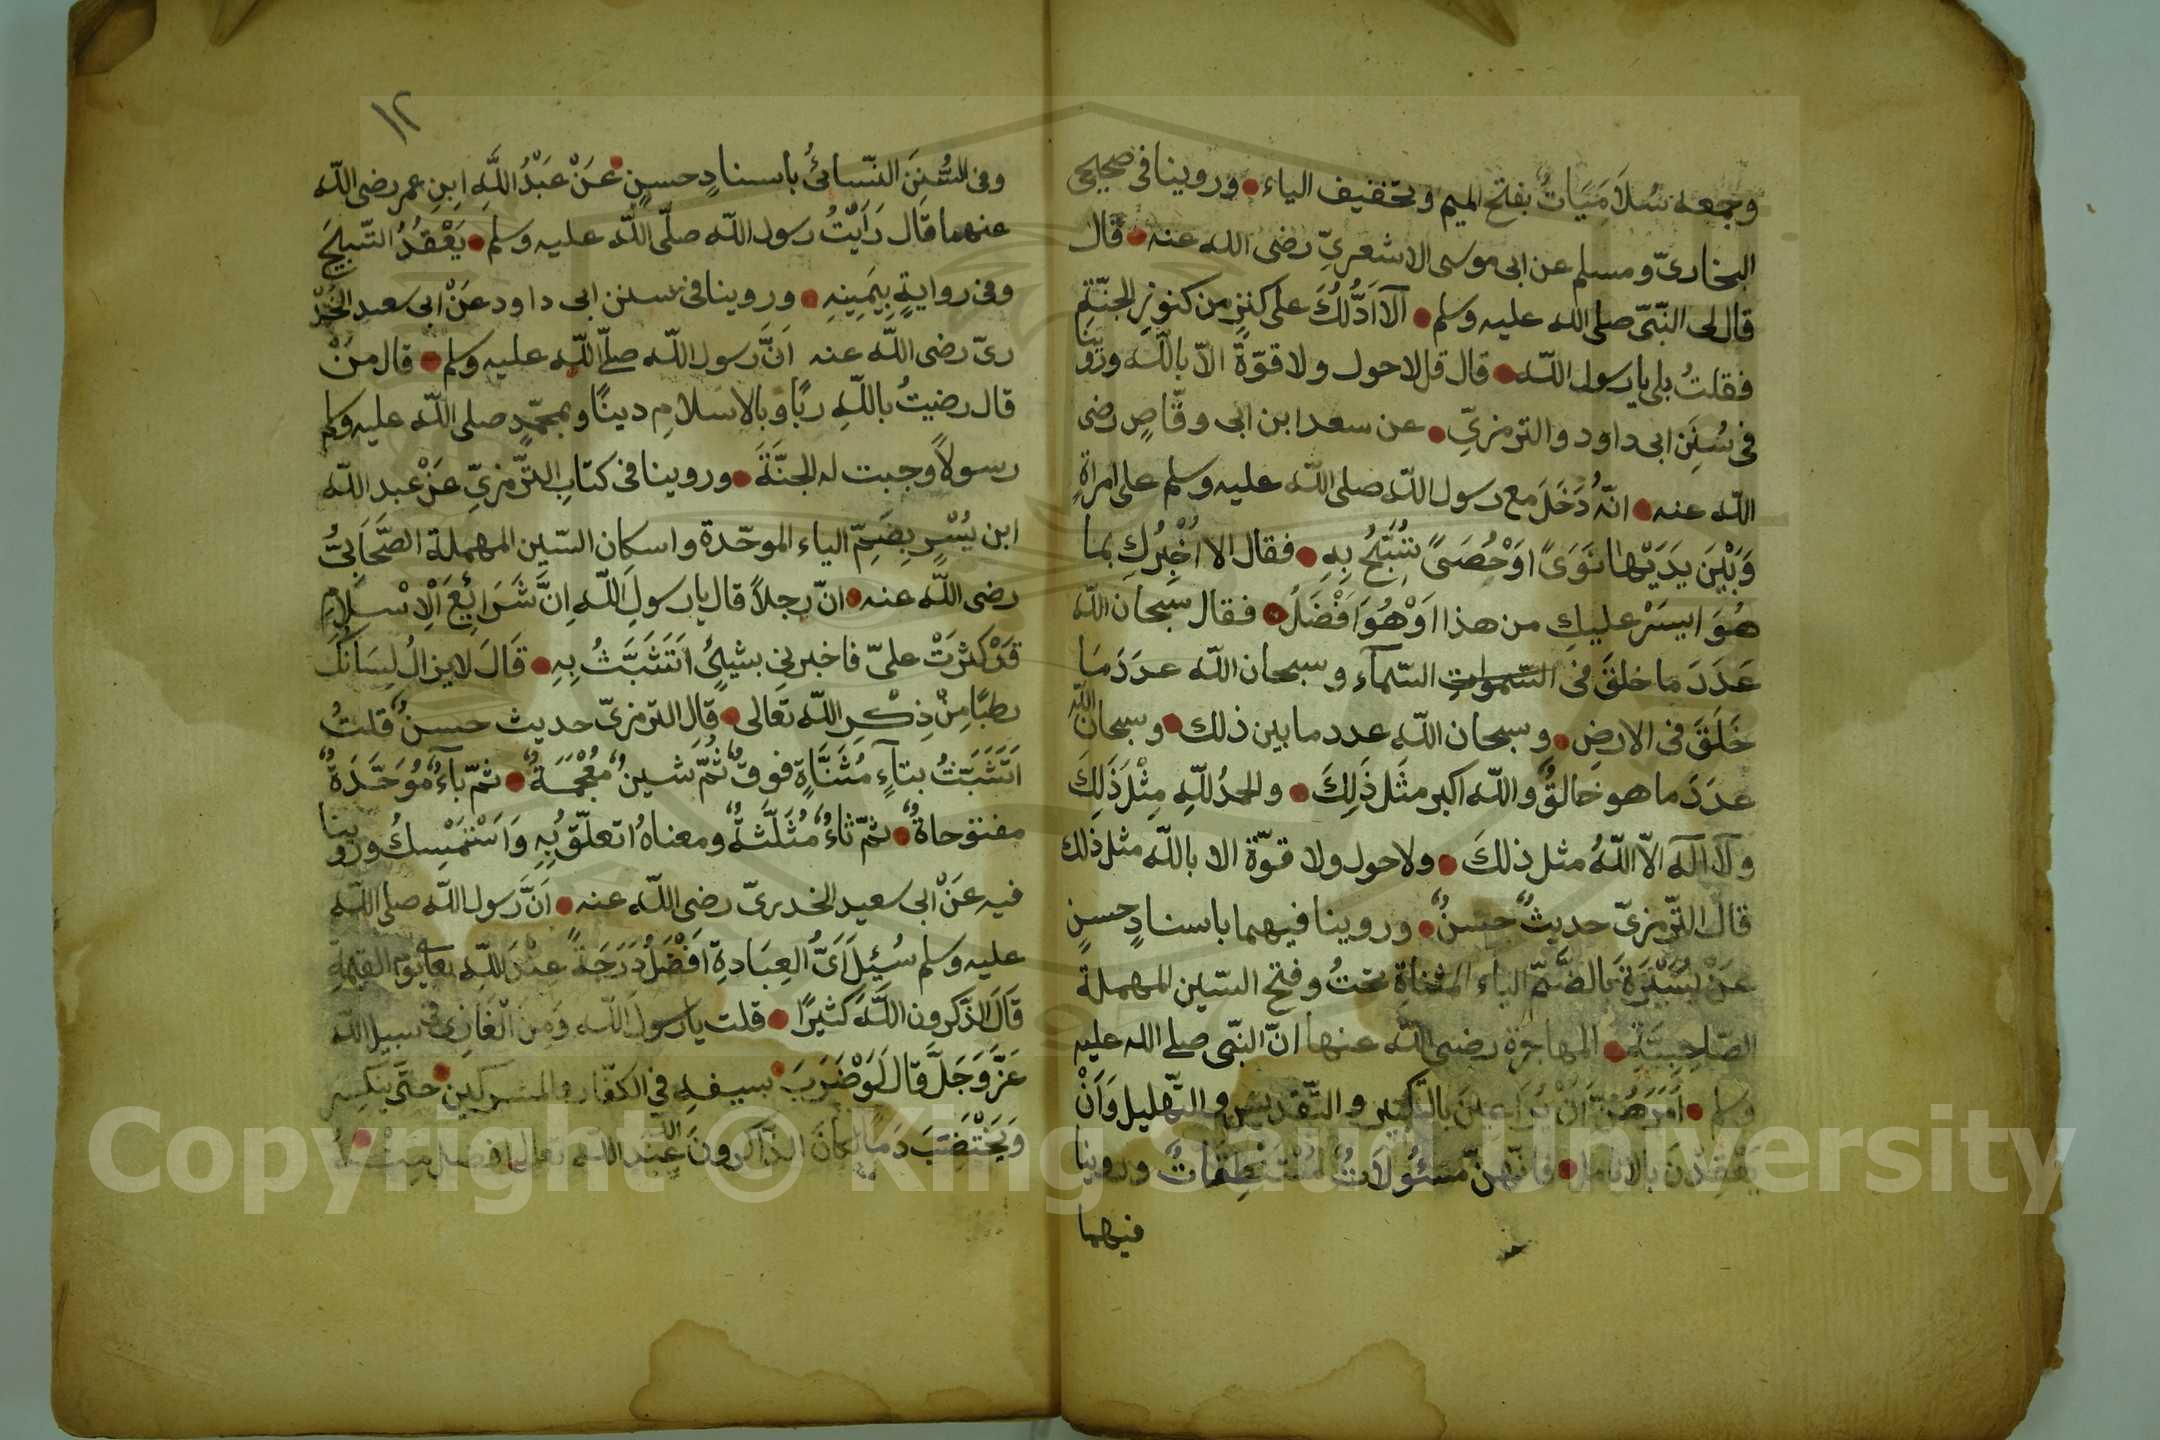 وجمعه سُلَامَيَاتٌ بفتح الميم وتخفيف الياء وروينا فى صحيحى
البخارىّ ومسلم عن ابى موسى الاشعرىّ رضى الله عنه قال
قال لى النّبىّ صلى الله عليه وسلم اَلَا اَدُلُّكَ على كنزٍ من كنوزِ الجنّةِ
فقلتُ بلى يا رسول اللّه قال قل لا حول ولا قوّةَ الاّ باللّه وروينا
فى سُنَنِ ابى داود والترمزىّ عن سعد ابن ابى وقّاصٍ رضى
اللّه عنه انّهُ دَخَلَ مع رسول اللّه صلى اللّه عليه وسلم على امراةٍ
وَبَيْنَ يَدَيْها نَوَىً اَوْ حُصَىً تُسَبِّحُ بِهِ فقال الا اُخْبِرُكِ بما
هُوَ ايسَرُ عليكِ من هذا اَوْهُوَ اَفْضَلُ فقال سبحان اللّه
عَدَدَ ما خلقَ فى السّموات السّمآء وسبحان اللّه عددَ مَا
خَلَقَ فى الارضِ وسبحان اللّه عدد ما بين ذلك وسبحان اللّه
عدَدَ ما هو خالقٌ واللّه اكبر مثَل ذَلِكَ والحمدُ للّهِ مِثْلَ ذَلِكَ
ولَا اِلَه الاّ اللّهُ مثل ذلكَ ولا حول ولا قوّة الا باللّه مثل ذلك
قال التّرمزىّ حديثٌ حسنٌ وروينا فيهما باسنادٍ حسنٍ
عَنْ يُسَيْرَةَ بالضَّمّ الياء المثناةِ تحتُ وفتح السّين المهملة
الصّاحِبِيَّةِ المهاجرة رضى اللّه عنها انّ النبّى صلى الله عليه
وسلم اَمَرَهُنَّ اَنْ يُرَاعِينَ بالتّكبير والتّقديس والتّهليل وَاَنْ
يَعْقِدْنَ بالانامل فانّهنّ مسئُولَاتٌ مُسْتَنْطِقَاتٌ وروينا
فيهما
١٢
وفى السُّنَنَ النّسائىُّ باسنادٍ حسنٍ عَنْ عَبْدُ اللَّهِ ابنِ عمر رضى اللّه
عنهما قال رَاَيْتُ رسول اللّه صلّى اللّه عليه وسلم يَعْقِدُ التّسبيحَ
وفى روايةٍ بِيَمِينِهِ وروينا فى سنن ابى داود عَنْ ابى سعيد الخُدْ
رىّ رضى اللّه عنه اَنَّ رسول اللّه صلّى اللّه عليه وسلم قال مَنْ
قال رضيتُ باللّهِ ربًا وبالاسلامِ دينًا وبمحمّدٍ صلى اللّه عليه وسلم
رسولاً وجبت له الجنَّةَ وروينا فى كتابِ التّرمزىّ عَنْ عبد اللّه
ابن بُسْرٍ بِضَمّ الياء الموحّدة واسكان السّين المهملة الصَّحَابىُّ
رضى اللّه عنه انّ رجلاً قال يا رسولَ اللّه اِنَّ شَرَائِعَ الْاِسْلَامِ
قَدْ كَثرَتْ علىّ فاخبرنى بشيئٍ اَتَشَبَّثُ بِهِ قَالَ لا يزالُ لِسَانُكَ
رطبًا مِنْ ذِكْرِ اللّه تعالى قال الترمزىّ حديث حسنٌ قلتُ
اَتَشَبَّثُ بتآءٍ مُثَنَّاةٍ فوقٌ ثُمّ شينٌ مُعْجَمَةٌ ثمّ بآءٌ مُوَحَّدَةٌ
مفتوحاةٌ ثمّ ثاءٌ مُثَلَّثَةٌ ومعناهُ اتعلّقُ بِهِ وَاَسْتَمْسِكُ وروينا
فيه عَنْ ابى سعيد الخدرىّ رضى اللّه عنه اَنَّ رسول اللّه صلى اللّه
عليه وسلم سُئِلَ اَىُّ العِبَادةِ اَفْضَلُ دَرَجَةً عِنْدَ اللّه تعالى يوم القيمةِ
قَالَ الذّكرون اللَّهَ كَثيرًا قلت يا رسول اللّه وَمِنَ الْغَازى فى سبيل اللّه
عَزَّ وَجَلَّ قال لَوْ ضَرَبَ بسيفهِ فى الكفّار والمشركين حتّى ينكسِر
وَيَخْتَضِبَ دَمًا لكانَ الذّاكرونَ اللّه عِنْدَ اللّه تعالى افضل مِنْهُ
Copyright © King Saud University